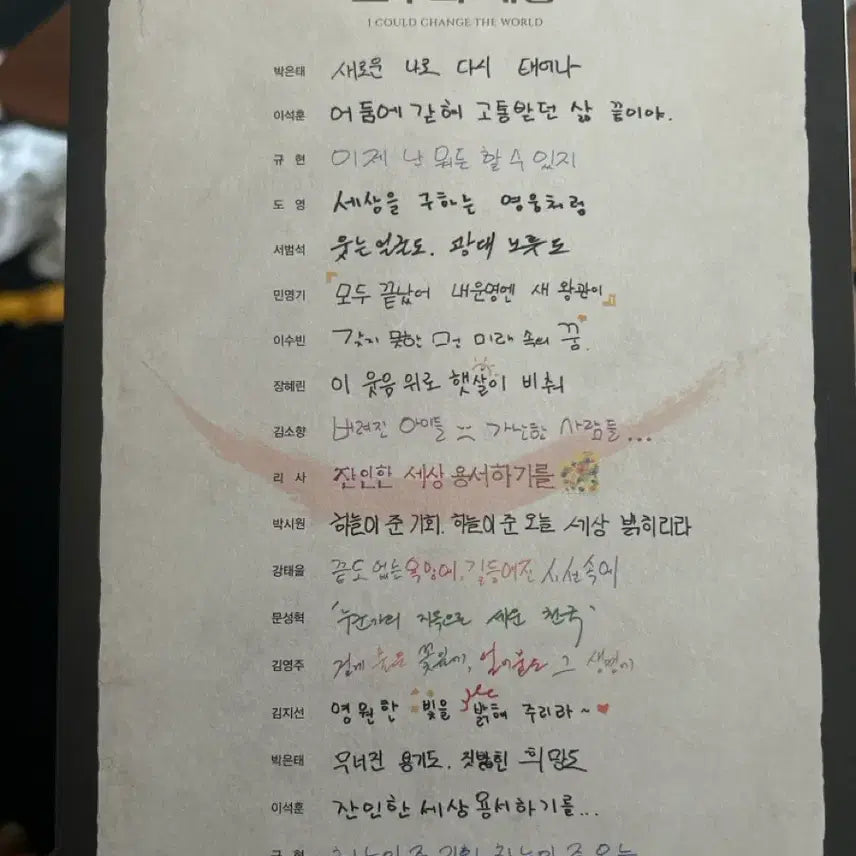 I COULD CHANGE THE WORLD
박은태 새로운 나로 다시 태어나
이석훈 어둠에 갇혀 고통받던 삶 끝이야.
규현 이제 난 뭐든 할 수 있지
도영 세상을 구하는 영웅처럼
서범석 웃는 얼굴도. 광대 노릇도
민영기 『모두 끝났어 내 운명엔 새 왕관이』
이수빈 갖지 못한 그 미래 속의 꿈.
장혜린 이 웃음 위로 햇살이 비춰
김소향 버려진 아이들 가난한 사람들...
리사 잔인한 세상 용서하기를
박시원 하늘이 준 기회. 하늘이 준 오늘 세상 밝히리라
강태을 끝도 없는 욕망에, 길들여진 시선 속에
문성혁 '누군가의 지옥으로 세운 천국'
김영주 검게 물든 꽃잎에, 얼어붙은 그 생명에
김지선 영원한 빛을 밝혀 주리라~
박은태 무너진 용기도. 짓밟힌 희망도
이석훈 잔인한 세상 용서하기를...
규현 하늘이 준 기회 하늘이 준 오늘